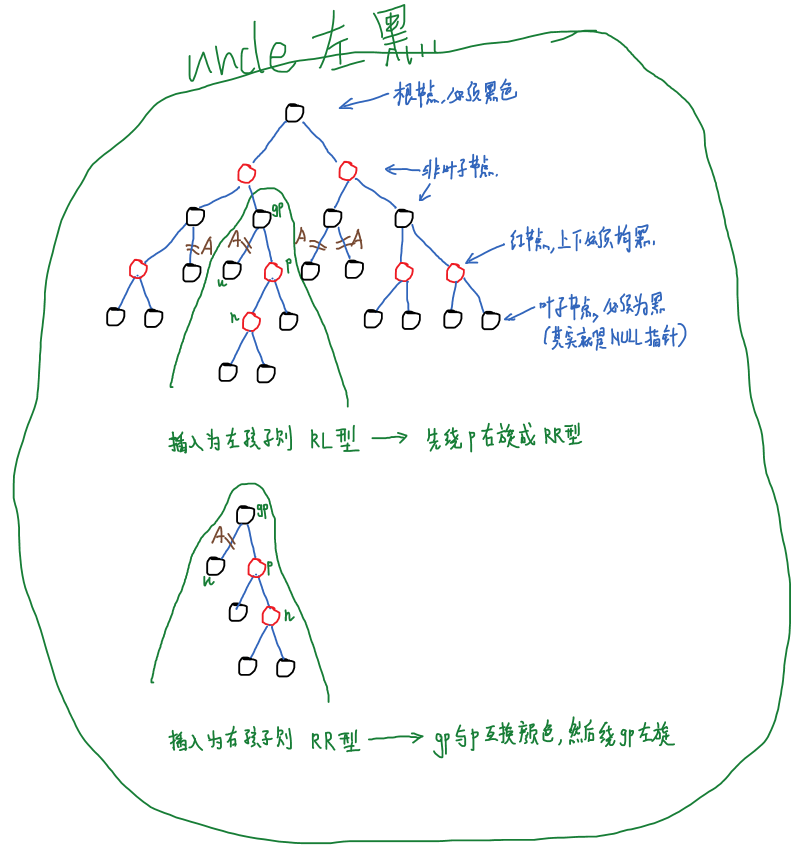 uncle 左黑...
根节点,必须黑色
非叶子节点.
gp
A
A
A
A
u
p
红节点,上下必须均黑.
n
叶子节点,必须为黑
(其实就是 NULL 指针)
插入为左孩子则 RL型 → 先绕p右旋成RR型
gp
A
u
p
n
插入为右孩子则 RR型 → gp与p互换颜色,然后绕gp左旋